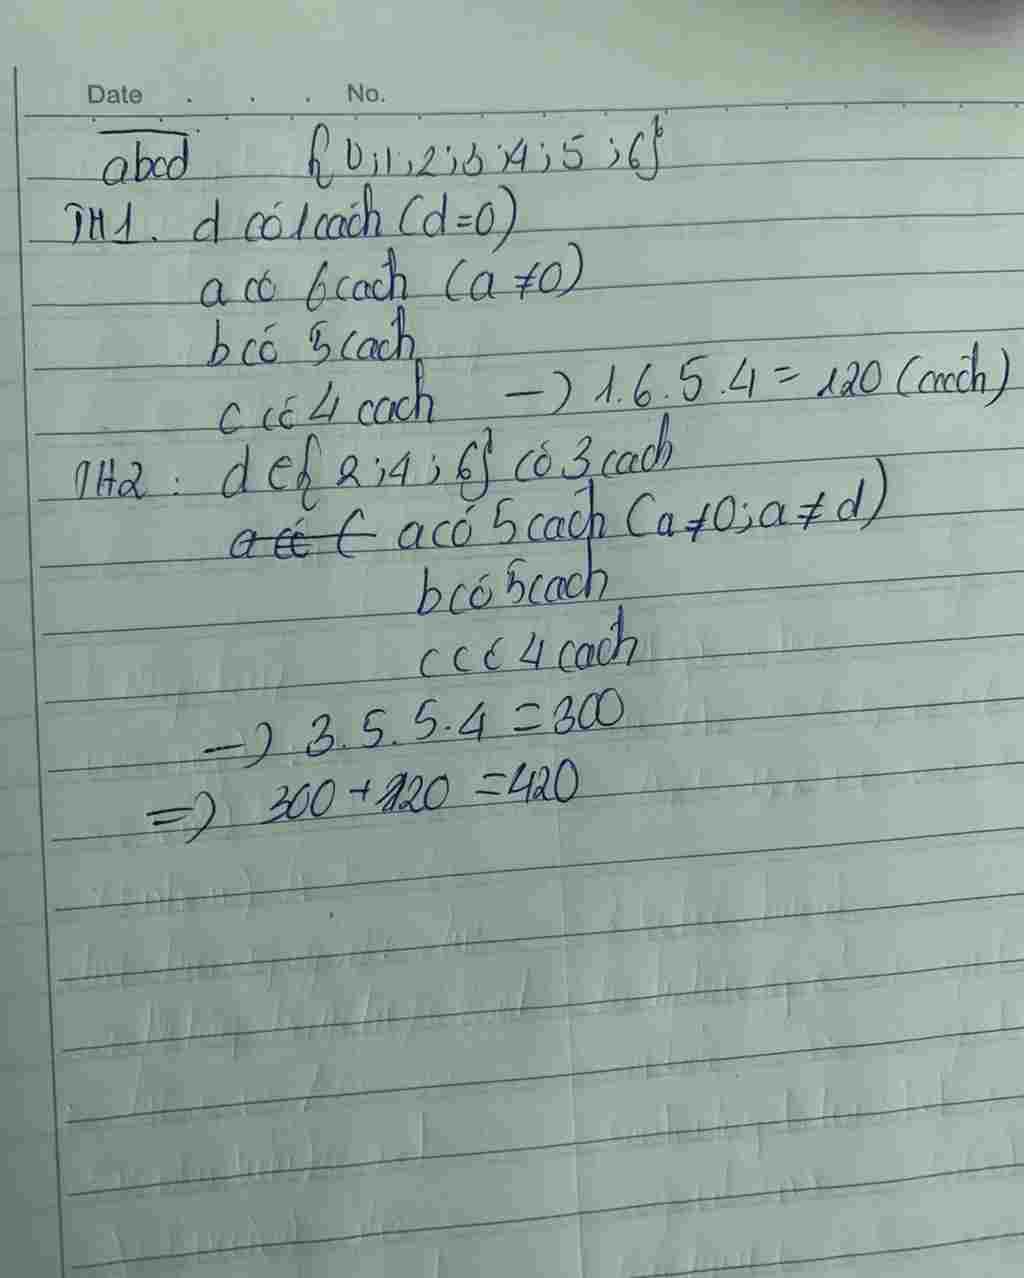 Date . . . No.
abcd {0;1;2;3;4;5;6}
TH1. d có 1 cách (d=0)
a có 6 cách (a≠0)
b có 5 cách
c có 4 cách → 1.6.5.4 = 120 (cách)
TH2: d∈{2;4;6} có 3 cách
a có 5 cách (a≠0; a≠d)
b có 5 cách
c có 4 cách
→ 3.5.5.4 = 300
⇒ 300 + 120 = 420